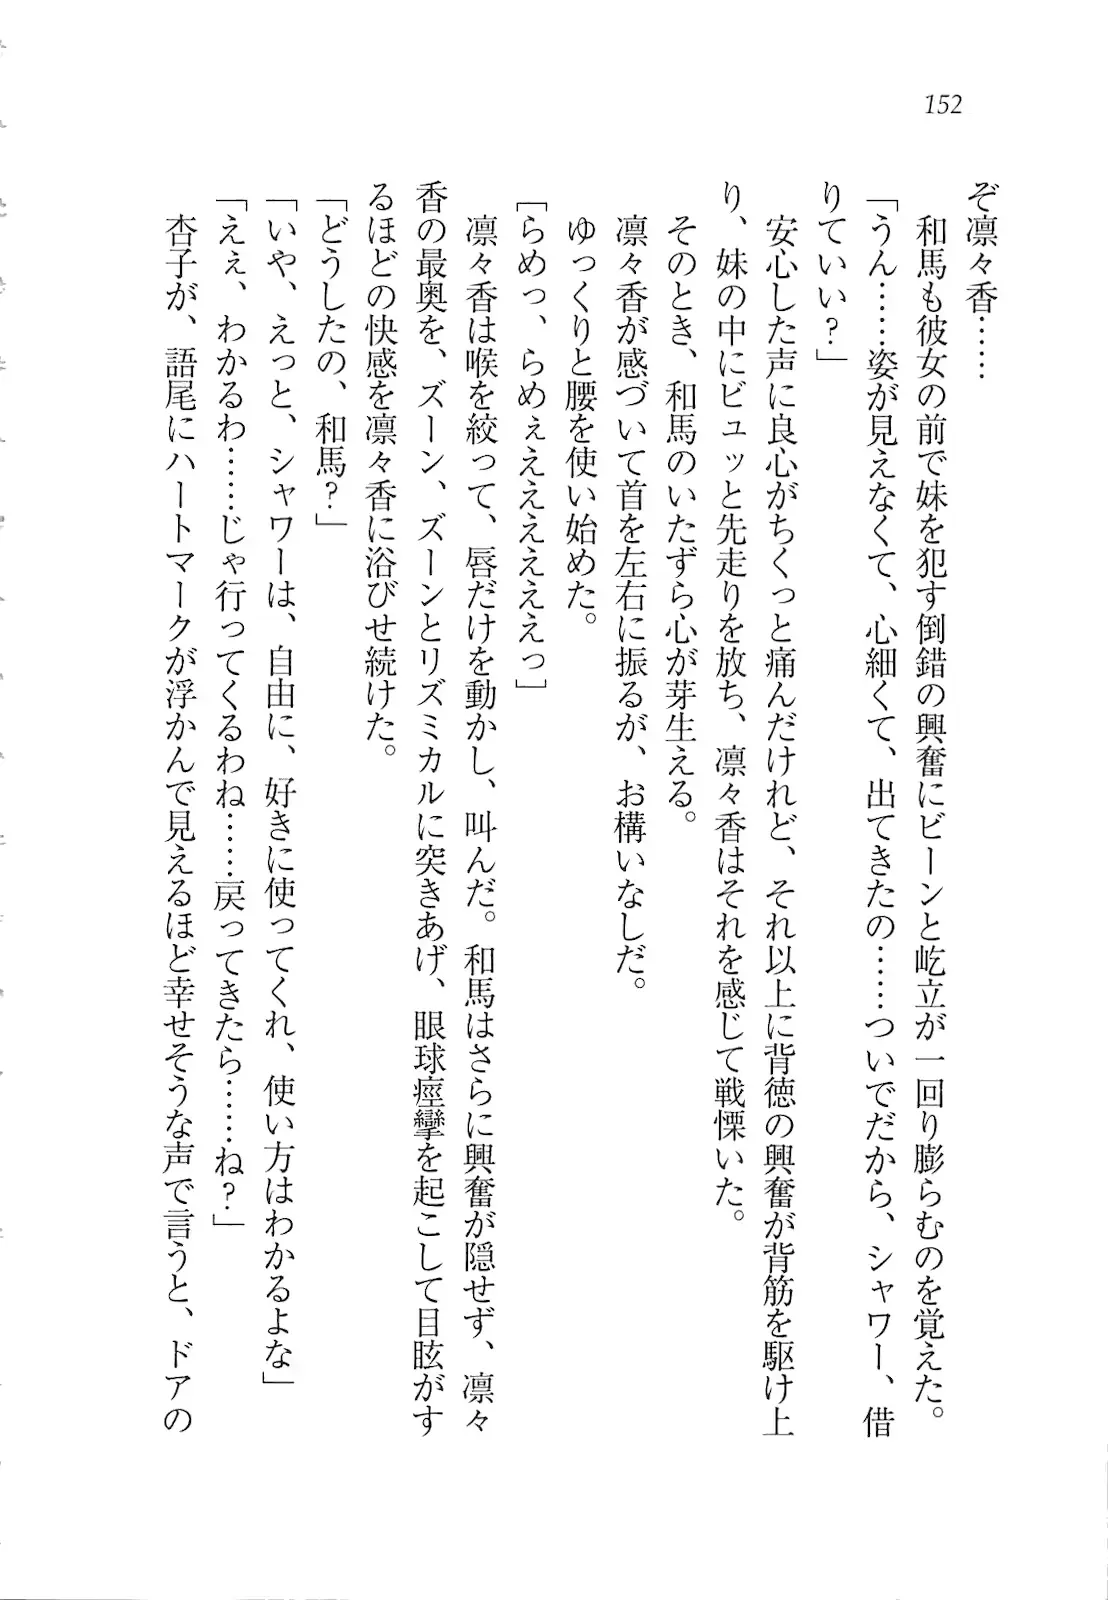 152
ぞ凛々香……
和馬も彼女の前で妹を犯す倒錯の興奮にビーンと屹立が一回り膨らむのを覚えた。
「うん……姿が見えなくて、心細くて、出てきたの……ついでだから、シャワー、借
りていい?」
安心した声に良心がちくっと痛んだけれど、それ以上に背徳の興奮が背筋を駆け上
り、妹の中にビュッと先走りを放ち、凛々香はそれを感じて戦慄いた。
そのとき、和馬のいたずら心が芽生える。
凛々香が感づいて首を左右に振るが、お構いなしだ。
ゆっくりと腰を使い始めた。
[らめっ、らめぇえええええっ]
凛々香は喉を絞って、唇だけを動かし、叫んだ。和馬はさらに興奮が隠せず、凛々
香の最奥を、ズーン、ズーンとリズミカルに突きあげ、眼球痙攣を起こして目眩がす
るほどの快感を凛々香に浴びせ続けた。
「どうしたの、和馬?」
「いや、えっと、シャワーは、自由に、好きに使ってくれ、使い方はわかるよな」
「えぇ、わかるわ……じゃ行ってくるわね……戻ってきたら……ね?」
杏子が、語尾にハートマークが浮かんで見えるほど幸せそうな声で言うと、ドアの